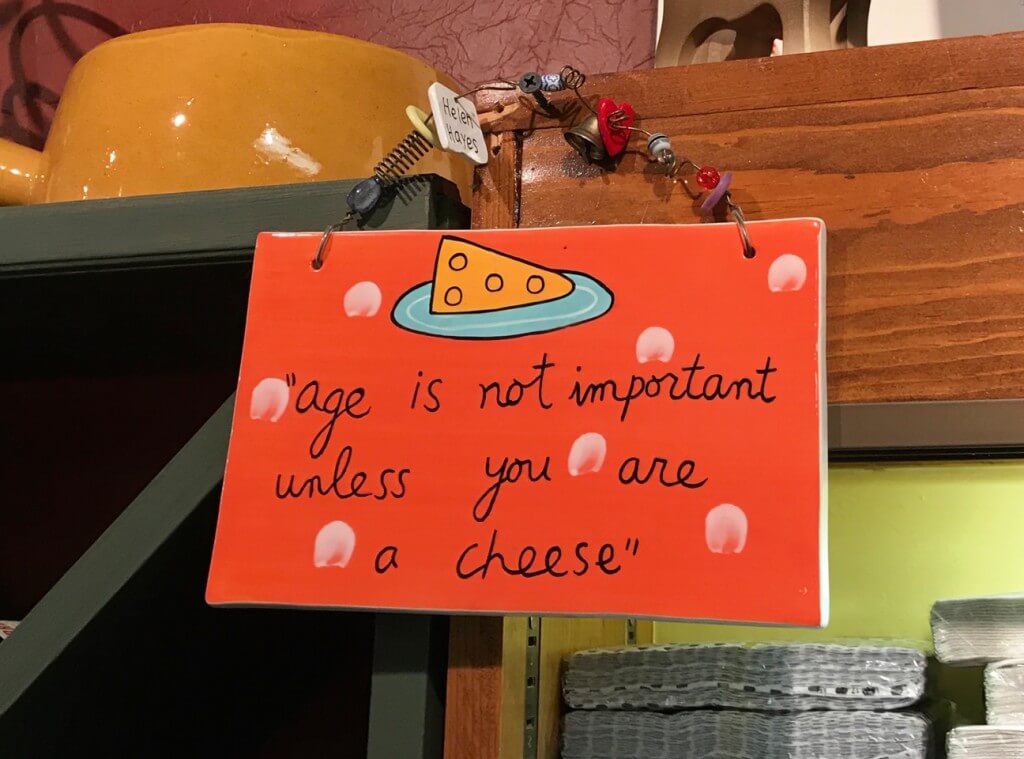 Helen
Hayes
"age is not important
unless you are
a cheese"